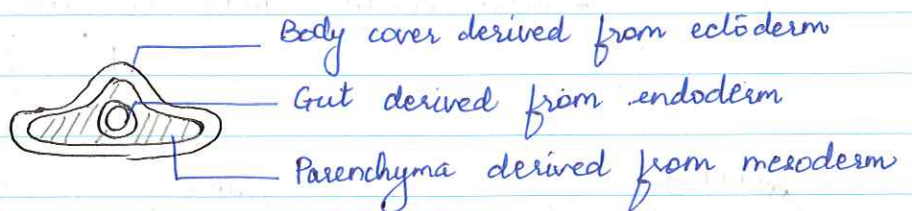 Body cover derived from ectoderm
Gut derived from endoderm
Parenchyma derived from mesoderm